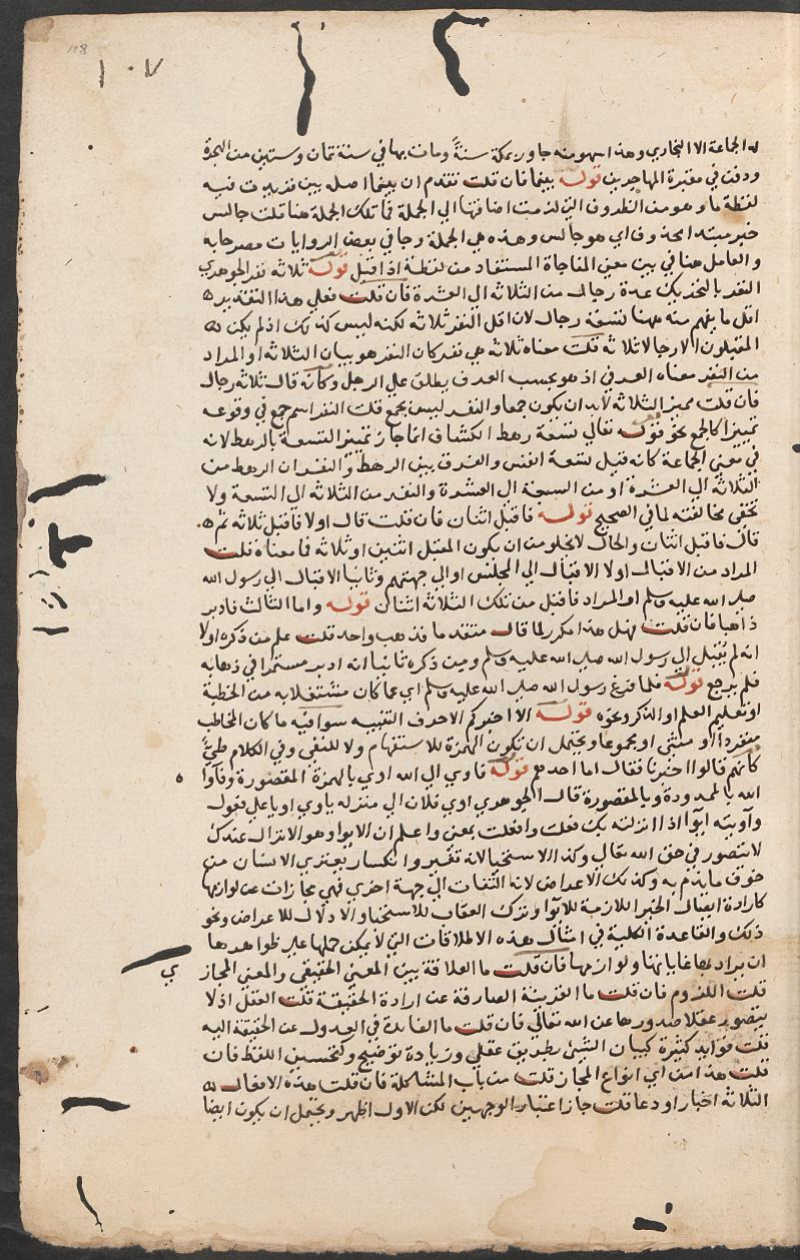 108
١٠٧
له الجماعة الا البخاري وهذا سهو منه جاور بمكة سنة ومات بها في سنة ثمان وستين من الهجرة
ودفن في مقبرة المهاجرين قوله بينما فان قلت تقدم ان بينما اصله بين فزيدت فيه
لفظة ما وهو من الظروف التي لزمت اضافتها الي الجملة فما تلك الجملة هنا قلت جالس
خبر مبتدا محذوف اي هو جالس وهذه هي الجملة وجا في بعض الروايات مصرحا به
والعامل هنا في بين معني المفاجاة المستفاد من لفظة اذ اقبل قوله ثلاثه نفر الجوهري
النفر بالتحريك عدة رجال من الثلاثه الي العشرة فان قلت فعلي هذا التقدير
اقل ما يفهم منه ههنا تسعة رجال لان اقل النفر ثلاثه لكنه ليس كذلك اذ لم يكن
المقبلون الا رجالا ثلاثه قلت معناه ثلاثه هي نفر كان النفر هو بيان الثلاثه او المراد
من النفر معناه العرفي اذ هو بحسب العرف يطلق علي الرجل وكانه قال ثلاثه رجال
فان قلت مميز الثلاثه لابد ان يكون جمعا والنفر ليس بجمع قلت النفر اسم جمع في وقوعه
تمييزا كالجمع نحو قوله تعالي تسعة رهط الكشاف انما جاز تمييز التسعة بالرهط لانه
في معني الجماعة كانه قيل تسعة انفس والفرق بين الرهط والنفر ان الرهط من
الثلاثة الي العشرة او من السبعة الي العشرة والنفر من الثلاثه الي التسعة ولا
تخفي مخالفته لما في الصحيح قوله فاقبل اثنان فان قلت قال اولا فاقبل ثلاثه ثم
قال فاقبل اثنان والحال لا يخلو من ان يكون المقبل اثنين او ثلاثه فما معناه قلت
المراد من الاقبال اولا الاقبال الي المجلس او الي جهتهم وثانيا الاقبال الي رسول الله
صلي الله عليه وسلم او المراد فاقبل من تلك الثلاثه اثنان قوله واما الثالث فادبر
ذاهبا فان قلت فهل هذا مكرر لما قال متقدما فذهب واحد قلت علم من ذكره اولا
انه لم يقبل الي رسول الله صلي الله عليه وسلم ومن ذكره ثانيا انه ادبر مستمرا في ذهابه
فلم يرجع قوله فلما فرغ رسول الله صلي الله عليه وسلم اي عما كان مشتغلا به من الخطبة
او تعليم العلم او الذكر ونحوه قوله الا اخبركم الا حرف التنبيه سوا فيه ما كان المخاطب
مفردا او مثني او مجموعا ويحتمل ان يكون الهمزة للاستفهام ولا للنفي وفي الكلام طيّ
كانهم قالوا اخبرنا فقال اما احدهم قوله فاوي الي الله اوي بالهمزة المقصورة وفآوا
الله بالممدودة وبالمقصورة قال الجوهري اوي فلان الي منزله ياوي اويا علي فعول
وآويته ايوآ اذا انزلته بك فعلت وافعلت بمعني واعلم ان الايوا وهو الانزال عندك
لا يتصور في حق الله تعالي وكذا الاستحيا لانه تغير وانكسار يعتري الانسان من
خوف ما يذم به وكذلك الاعراض لانه التفات الي جهة اخري فهي مجازات عن لوازمها
كارادة ايصال الخير اللازمة للايوا وترك العقاب للاستحيا والاذلال للاعراض ونحو
ذلك والقاعدة الكلية في امثال هذه الاطلاقات التي لا يمكن حملها علي ظواهرها
ان يراد بها غاياتها ولوازمها فان قلت ما العلاقة بين المعني الحقيقي والمعني المجاز
ي
قلت اللزوم فان قلت ما القرينة الصارفة عن ارادة الحقيقة قلت العقل اذ لا
يتصور عقلا صدورها عن الله تعالي فان قلت ما الفايدة في العدول عن الحقيقة اليه
قلت فوايد كثيرة كبيان الشيئ بطريق عقلي وزيادة توضيح وتحسين اللفظ فان
قلت هذا من اي انواع المجاز قلت من باب المشاكلة فان قلت هذه الافعال
الثلاثه اخبار او دعا قلت جاز اعتبار الوجهين لكن الاول اظهر ويحتمل ان يكون ايضا